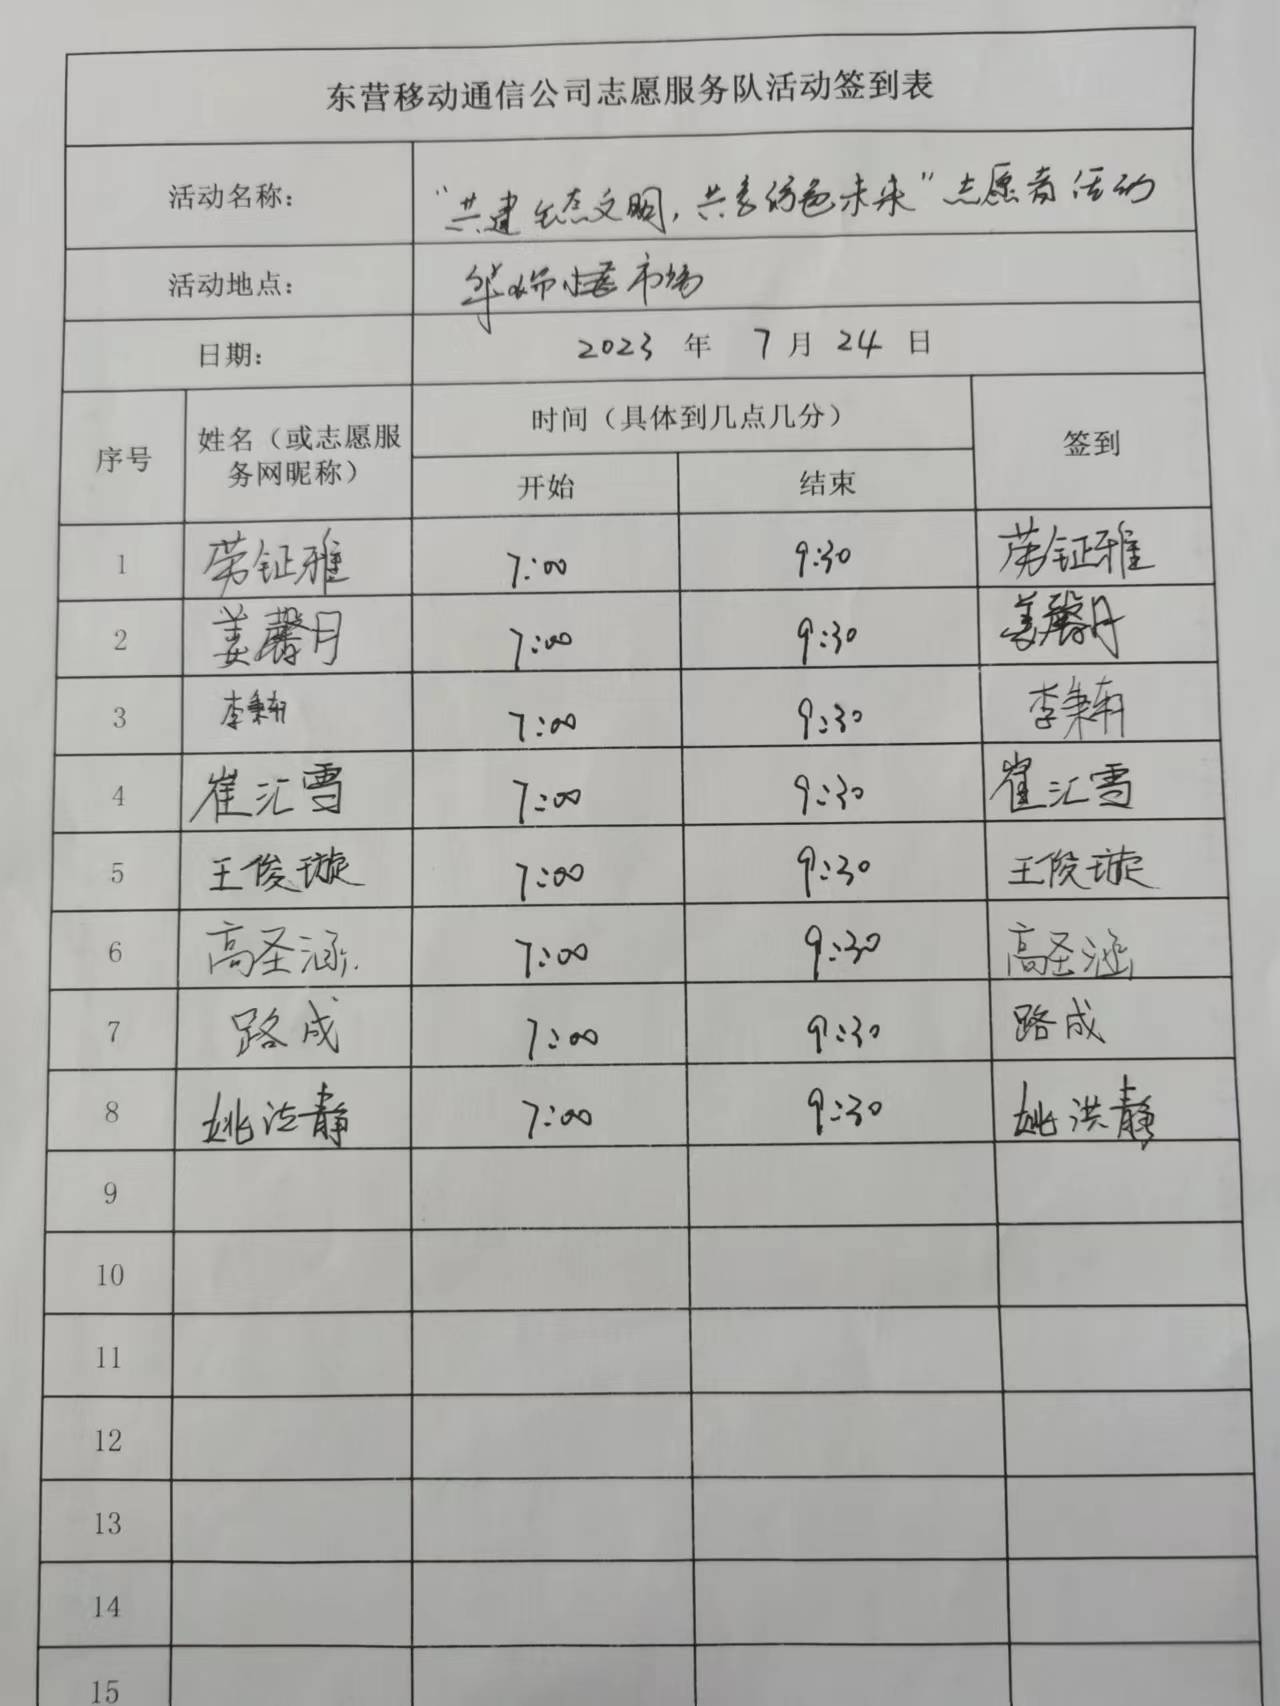 东营移动通信公司志愿服务队活动签到表
活动名称： "共建生态文明，共享绿色未来"志愿者活动
活动地点： 市场
日期： 2023 年 7 月 24 日
序号 姓名（或志愿服务网昵称） 时间（具体到几点几分） 签到
开始 结束
1 荣钲雅 7:00 9:30 荣钲雅
2 姜馨月 7:00 9:30 姜馨月
3 李秉轩 7:00 9:30 李秉轩
4 崔汇雪 7:00 9:30 崔汇雪
5 王俊璇 7:00 9:30 王俊璇
6 高圣涵 7:00 9:30 高圣涵
7 路成 7:00 9:30 路成
8 姚洪静 7:00 9:30 姚洪静
9
10
11
12
13
14
15